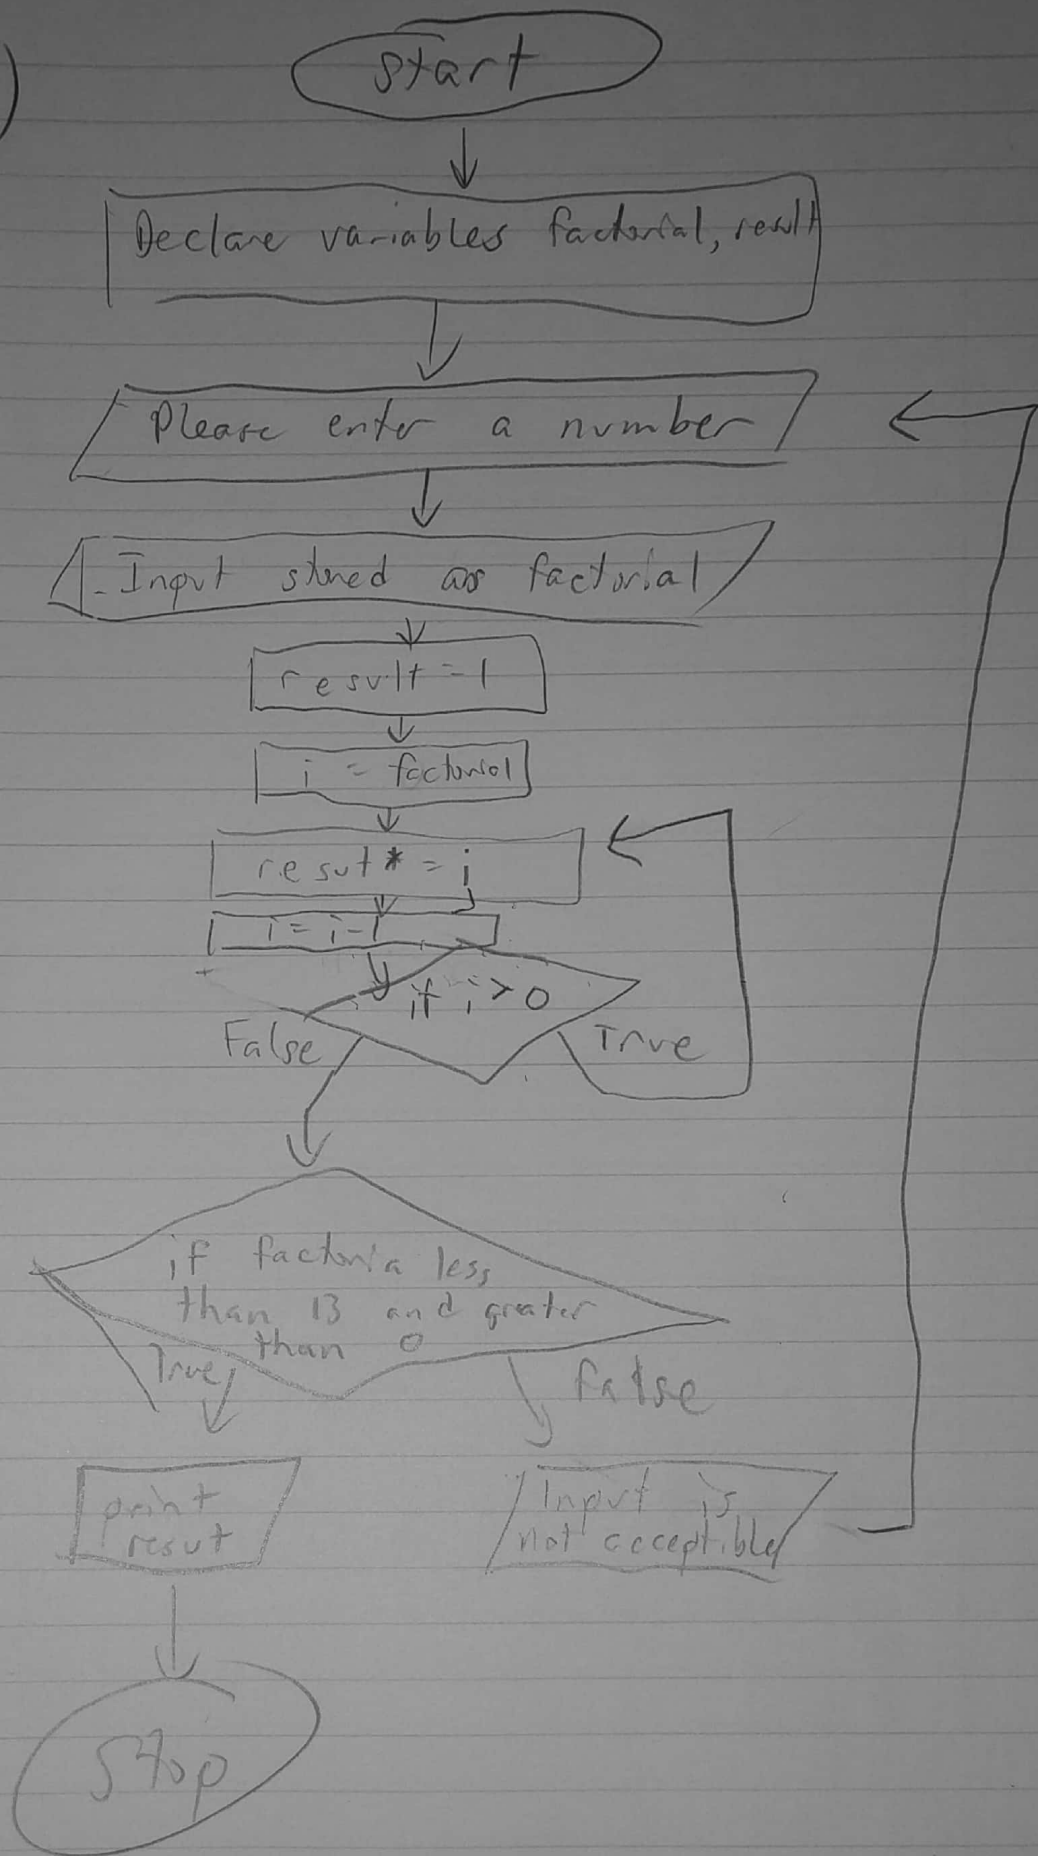 )
start
Declare variables factorial, result
Please enter a number
Input stored as factorial
result = 1
i = factorial
resut * = i
i = i - 1
if i > 0
False
True
if factoria less
than 13 and greater
than 0
True
false
print
resut
Input is
not acceptible
Stop